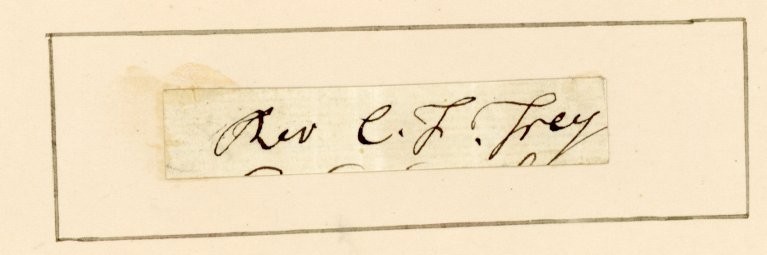 Rev C. F. Frey